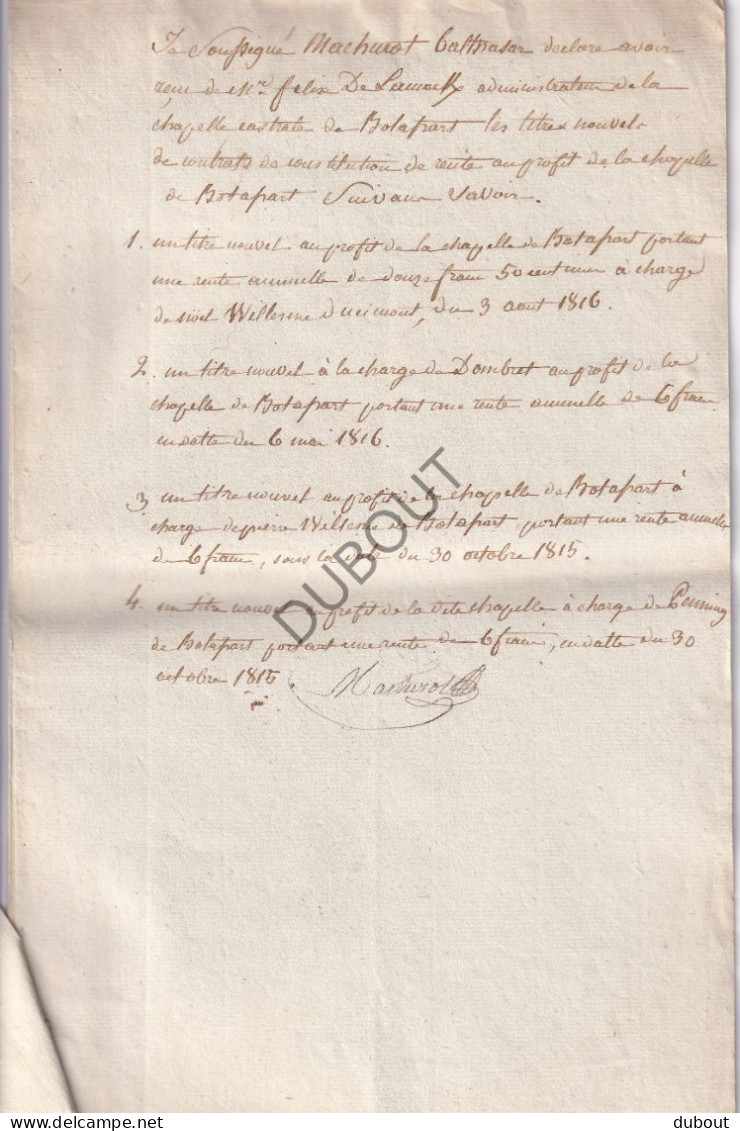 Je Soussigné Machurot Balthasar declare avoir
reçu de Mr. felix De Lamock administrateur de la
chapelle castrale de Bolapart les titres nouvels
de contrats de constitution de rente au profit de la chapelle
de Botapart Suivans Savoir.
1. un titre nouvel au profit de la chapelle de Botapart portant
une rente annuelle de douze franc 50 centimes à charge
de noel Willesme d'ucimont, du 3 aout 1816.
2. un titre nouvel à la charge de Dombret au profit de la
chapelle de Botapart portant une rente annuelle de 6 franc
en datte du 6 mai 1816.
3 un titre nouvel au profit de la chapelle de Botapart à
charge de pierre Willesme de Botapart portant une rente annuelle
de 6 franc, sous la date du 30 octobre 1815.
4. un titre nouvel au profit de la dite chapelle à charge de Penning
de Botapart portant une rente de 6 franc, en datte du 30
octobre 1815.
Machurot
DUBOUT
dubout
delcampe.net